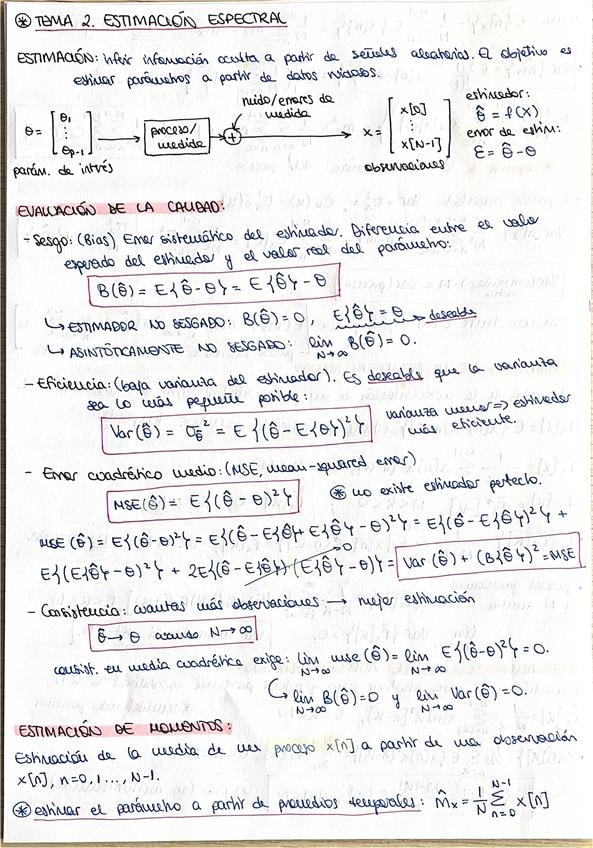 ⊛ TEMA 2. ESTIMACIÓN ESPECTRAL
ESTIMACIÓN: Inferir información oculta a partir de señales aleatorias. El objetivo es
estimar parámetros a partir de datos ruidosos.
ruido/errores de
medida
θ = [θ₁ ⋮ θp-1] → proceso/medida → ⊕ → x = [x[0] ⋮ x[N-1]]
estimador:
θ̂ = f(x)
error de estim:
ε = θ̂ - θ
parám. de intrés
observaciones
EVALUACIÓN DE LA CALIDAD:
- Sesgo: (Bias) Error sistemático del estimador. Diferencia entre el valor
esperado del estimador y el valor real del parámetro:
B(θ̂) = E{θ̂ - θ} = E{θ̂} - θ
↳ ESTIMADOR NO SESGADO: B(θ̂) = 0, E{θ̂} = θ → deseable
↳ ASINTÓTICAMENTE NO SESGADO: lim N→∞ B(θ̂) = 0.
- Eficiencia: (baja varianza del estimador). Es deseable que la varianza
sea lo más pequeña posible:
Var(θ̂) = σ²θ̂ = E{(θ̂ - E{θ})²}
varianza menor ⇒ estimador
más eficiente.
- Error cuadrático medio: (MSE, mean-squared error)
MSE(θ̂) = E{(θ̂ - θ)²}
⊛ no existe estimador perfecto.
MSE(θ̂) = E{(θ̂-θ)²} = E{(θ̂ - E{θ̂} + E{θ̂} - θ)²} = E{(θ̂ - E{θ̂})²} +
E{(E{θ̂} - θ)²} + 2E{(θ̂ - E{θ̂})(E{θ̂} - θ)} = Var(θ̂) + (B{θ̂})² = MSE
0
- Consistencia: cuantas más observaciones → mejor estimación
θ̂ → θ cuando N→∞
consist. en media cuadrática exige: lim N→∞ mse(θ̂) = lim N→∞ E{(θ̂-θ)²} = 0.
↳ lim N→∞ B(θ̂) = 0 y lim N→∞ Var(θ̂) = 0.
ESTIMACIÓN DE MOMENTOS:
Estimación de la media de un proceso x[n] a partir de una observación
x[n], n=0,1...,N-1.
⊛ estimar el parámetro a partir de promedios temporales: m̂x = 1/N Σ n=0 N-1 x[n]